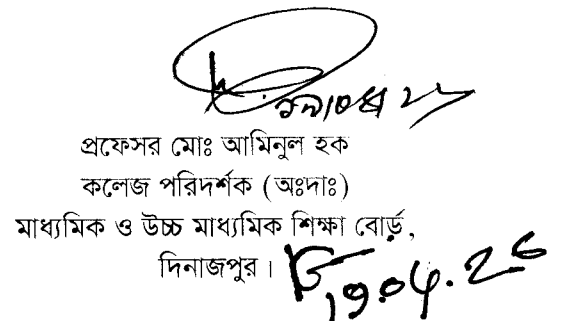 প্রফেসর মোঃ আমিনুল হক
কলেজ পরিদর্শক (অঃদাঃ)
মাধ্যমিক ও উচ্চ মাধ্যমিক শিক্ষা বোর্ড,
দিনাজপুর।
19.04.26